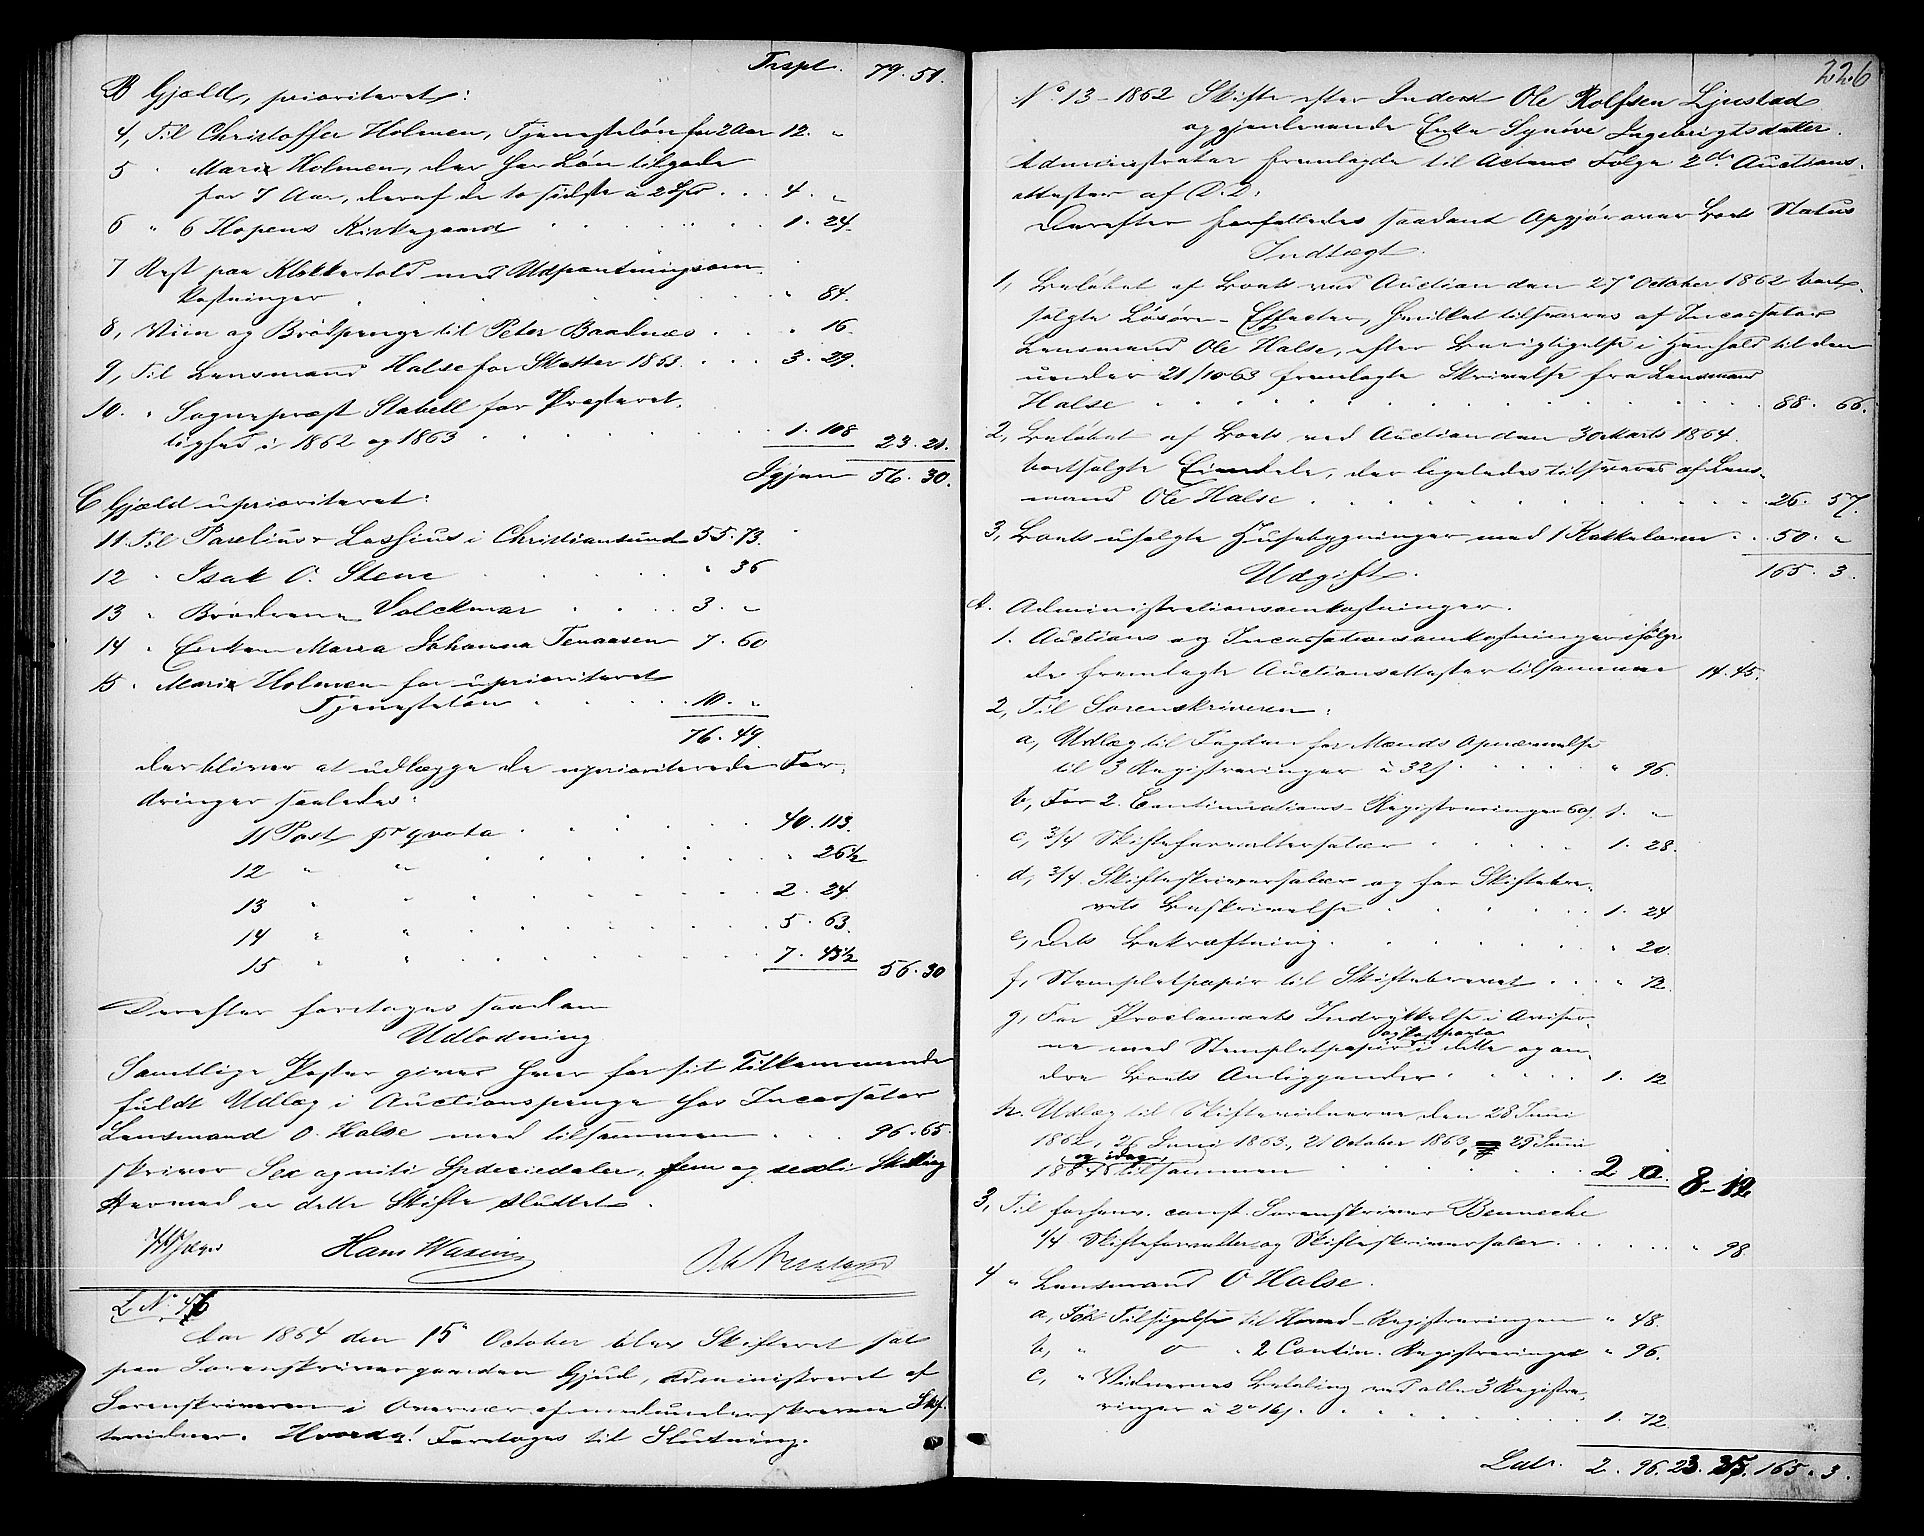 Trspt. 79. 51.
B Gjæld, prioriteret:
4, Til Christoffer Holmen, Tjenesteløn for 2 Aar 12. "
5 " Marie Holmen, der har Løn tilgode
for 7 Aar, deraf de to sidste a 2 Spd . . 4. "
6 " 6 Hopens Kirkegaard . . . 1. 24.
7 Rest paa Klokkertold med Udpantningsom
kostninger . . . " 84.
8, Viin og Brødpenge til Peter Baadnæs . . " 16.
9, Til Lensmand Halse for Skatter 1863. . . 3. 29.
10. " Sognepræst Stabell for Præsteret-
tighed i 1862 og 1863 . . . 1. 108 23. 21.
Igjen 56. 30.
C Gjæld uprioriteret:
11 Til Parelius & Lossius i Christiansund 55. 73.
12 " Isak O. Stene . . . " 36
13 " Brødrene Volckmar . . . 3. "
14 " Enken Maria Johanna Tenaasen 7. 60
15 " Marie Holmen for uprioriteret
Tjenesteløn . . . 10. "
76. 49.
der bliver at udlægge de uprioriterede For-
dringer saaledes:
11 Post pr qvota . . . 40. 113.
12 " " . . . " 26½
13 " " . . . 2. 24.
14 " " . . . 5. 63.
15 " " . . . 7. 43½ 56. 30
Derefter foretages saadan
Udlodning
Samtlige Poster gives hver for sit Tilkommende
fuldt Udlæg i Auctionspenge hos Incassator
Lensmand O. Halse med tilsammen . . . 96. 65.
skriver Sex og niti Speciedaler, fem og sexti Skilling
Hermed er dette Skifte sluttet.
Hans Wasing
L No 46
Aar 1864 den 15 October blev Skifteret sat
paa Sorenskrivergaarden Gjul, administreret af
Sorenskriveren i Overvær af medunderskrevne Skif-
tevidner. Hvorda! Foretoges til Slutning.
226
No 13 - 1862 Skifte efter Inderst Ole Rolfsen Ljustad
og gjenlevende Enke Synøve Ingebrigtsdatter.
Administrator fremlagde til Actens Følge 2de Auctions-
attester af D.D.
Derefter forfattedes saadant Opgjør over Boets Status
Indtægt.
1, Beløbet af Boets ved Auction den 27 October 1862 bort-
solgte Løsøre-Effecter, hvilket tilsvares af Incassator
Lensmand Ole Halse, efter Berigtigelse i Henhold til den
under 21/10 63 fremlagte Skrivelse fra Lensmand
Halse . . . 88. 66.
2, Beløbet af Boets ved Auction den 30 Marts 1864.
bortsolgte Eiendele, der ligeledes tilsvares af Lens-
mand Ole Halse . . . 26. 57.
3, Boets usolgte Husebygninger med 1 Kakkelovn . . 50. "
165. 3.
Udgift.
A. Administrationsomkostninger.
1. Auctions og Incassationsomkostninger ifølge
de fremlagte Auctionsattester tilsammen 14. 45.
2, Til Sorenskriveren:
a, Udlæg til Fogden for Mænds Opnævnelse
til 3 Registreringer à 32 s . . . " 96.
b, For 2 Continuations-Registreringer 60 s 1. "
c, 3/4 Skifteforvaltersalær . . . 1. 28.
d, 3/4 Skifteskriversalær og for Skiftebre-
vets Beskrivelse . . . 1. 24
e, Dets Bekræftning . . . " 20.
f, Stempletpapir til Skiftebrevet . . . " 12.
g, For Proclamaets Indrykkelse i Aviser-
ne med Stempletpapir og Postporto i dette og an-
dre Boets Anliggender . . . 1. 12
h. Udlæg til Skiftevidnerne den 28 Juni
1862, 26 Juni 1863, 21 October 1863, 29 Juni
1864 og idag tilsammen . . . 2 0. 8- 12
3, Til forhenv. const. Sorenskriver Bennecke
1/4 Skifteforvalter og Skifteskriversalær . . . " 98.
4 " Lensmand O Halse.
a, For Tilsigelse til Hoved-Registreringen " 48.
b, " o " 2 Contin. Registreringer " 96.
c, " Vidnernes Betaling ved alle 3 Registre-
ringer à 2 16 s . . . 1. 72.
Lat. 2. 96. 23. 35. 165. 3.